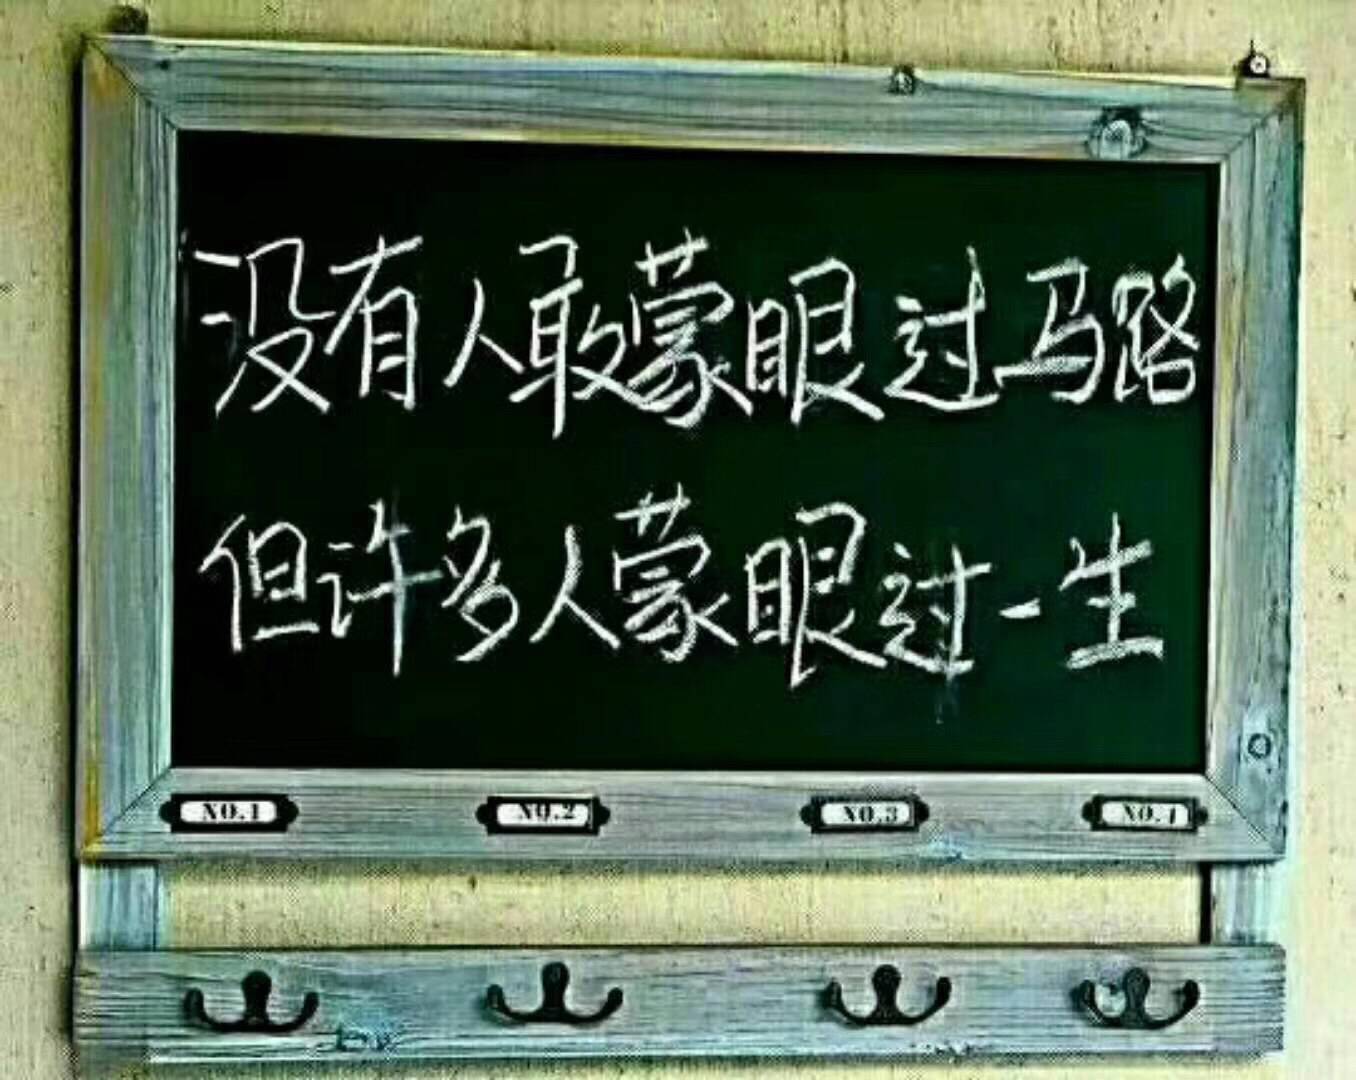 没有人敢蒙眼过马路
但许多人蒙眼过一生
NO.1 NO.2 NO.3 NO.4